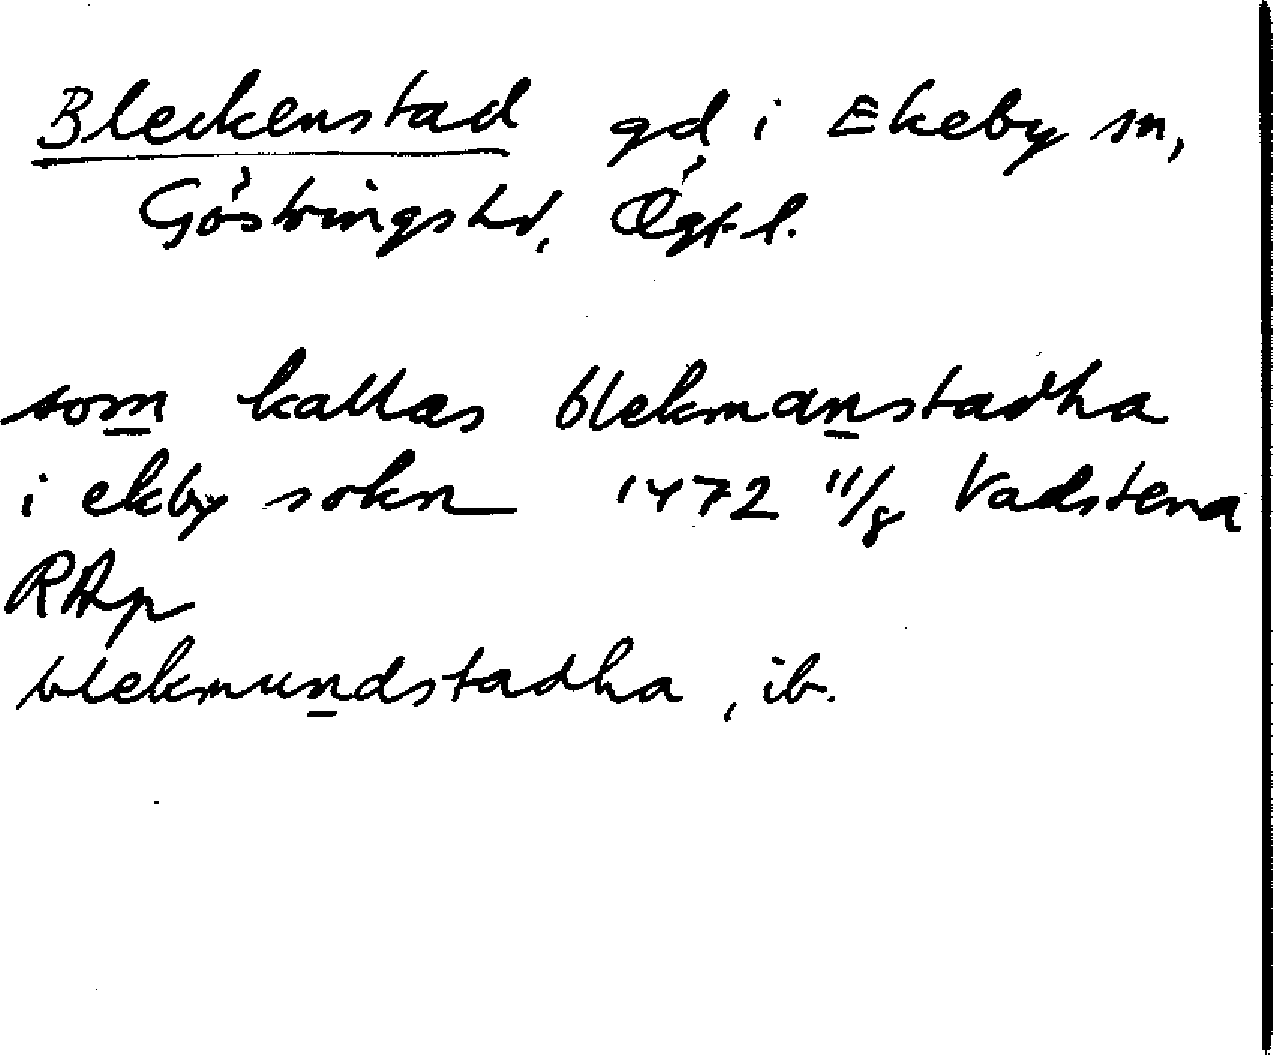 Bleckenstad gd i Ekeby sn,
Göstringshd, Ögtl.
som kallas blekmanstadha
i ekby sokn 1472 11/8 Vadstena
RAp
blekmundstadha, ib.